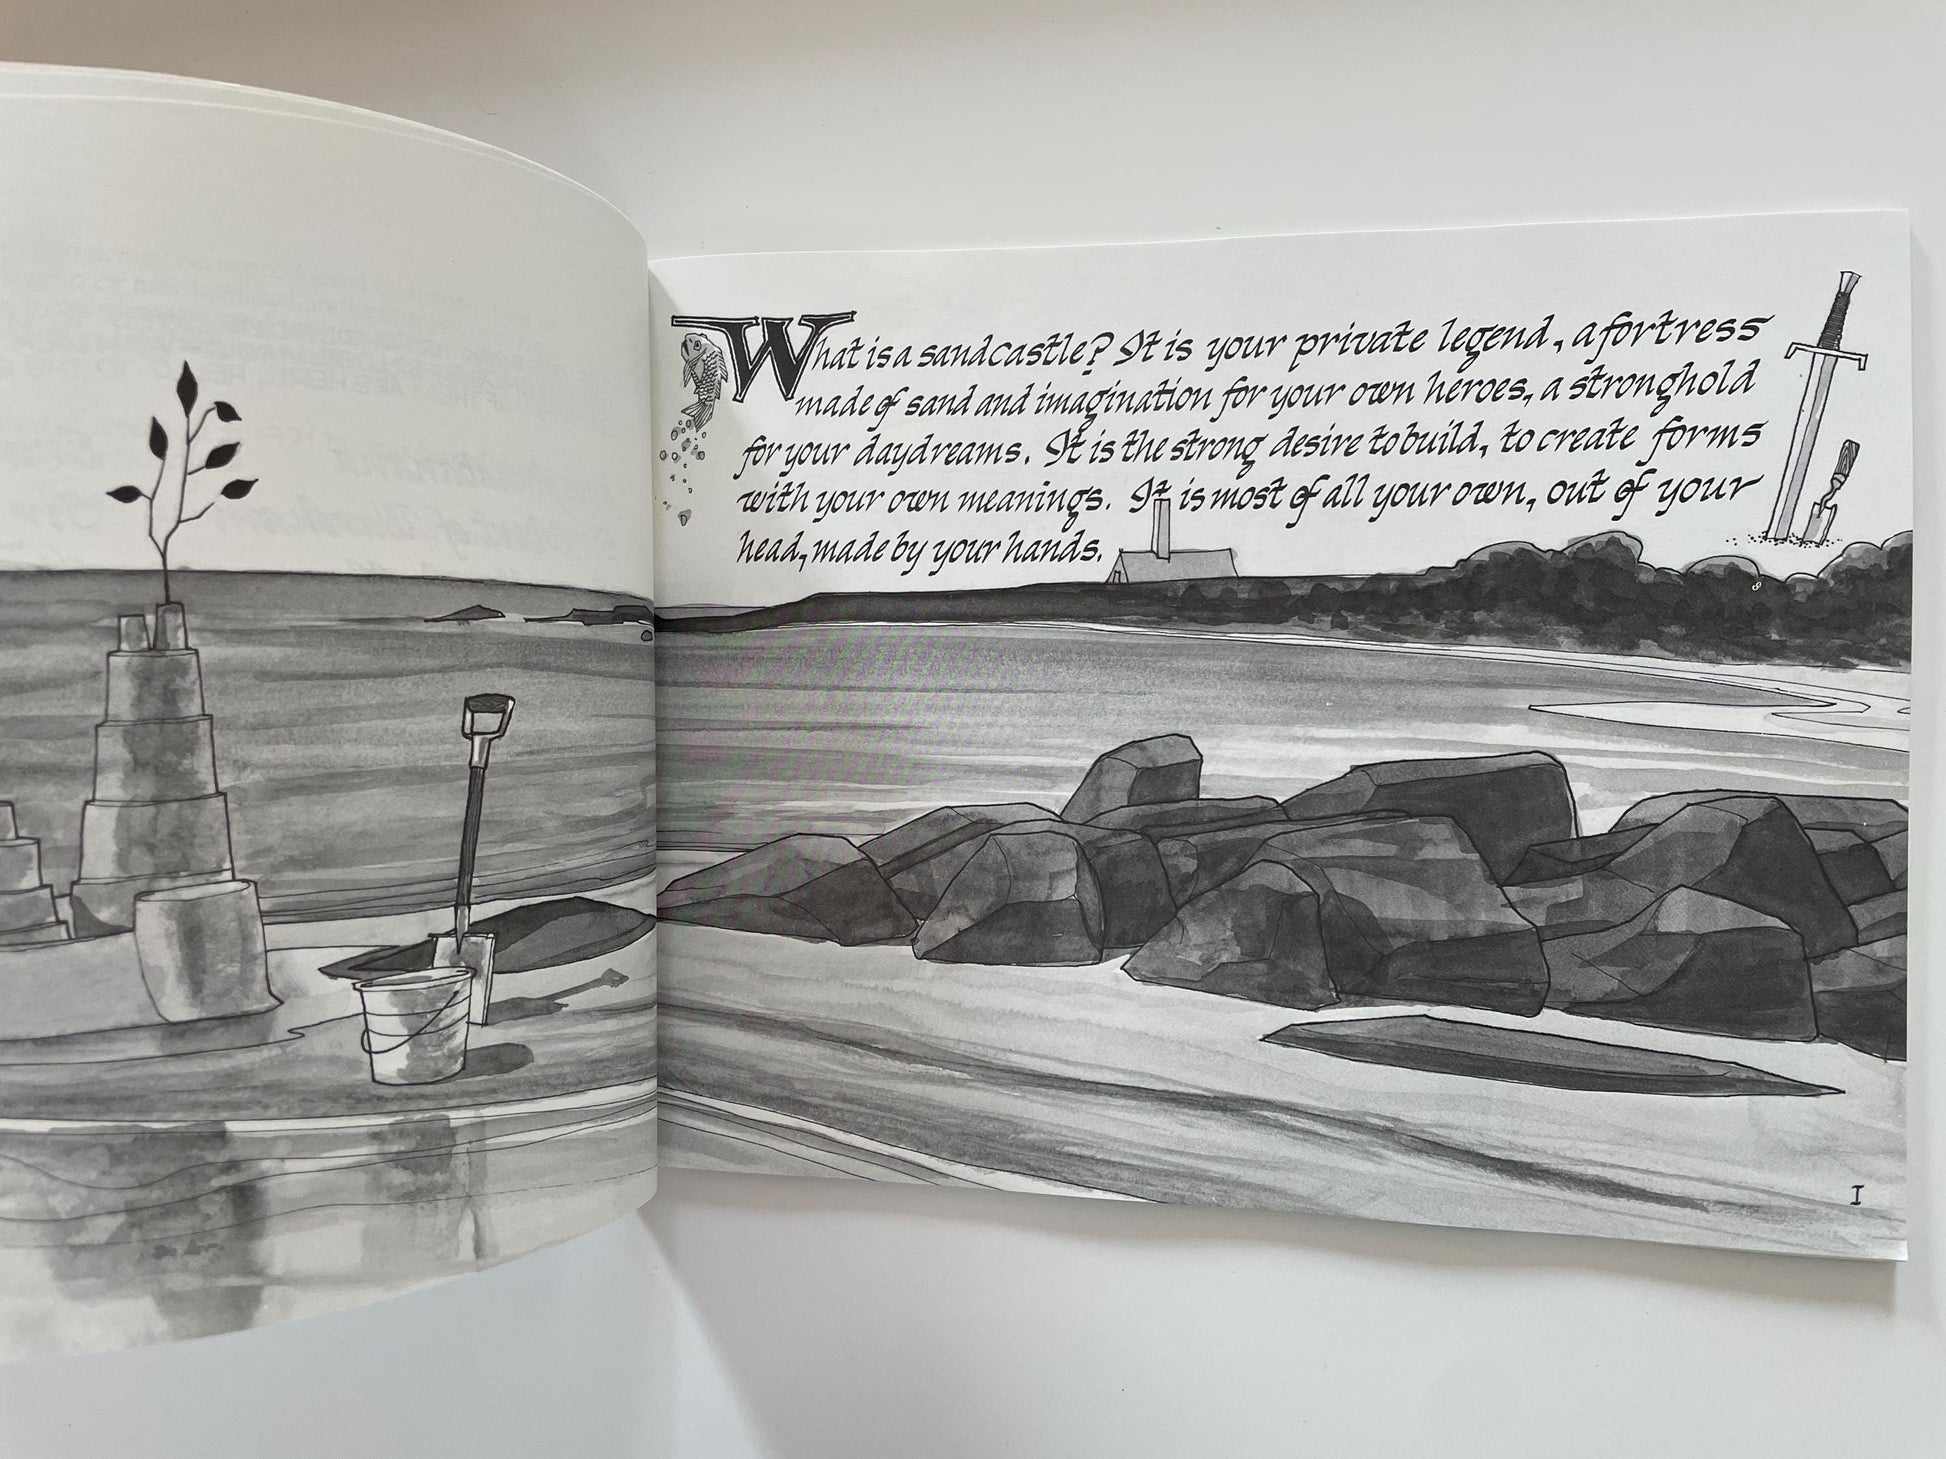 What is a sandcastle? It is your private legend, a fortress
made of sand and imagination for your own heroes, a stronghold
for your daydreams. It is the strong desire to build, to create forms
with your own meanings. It is most of all your own, out of your
head, made by your hands.
I